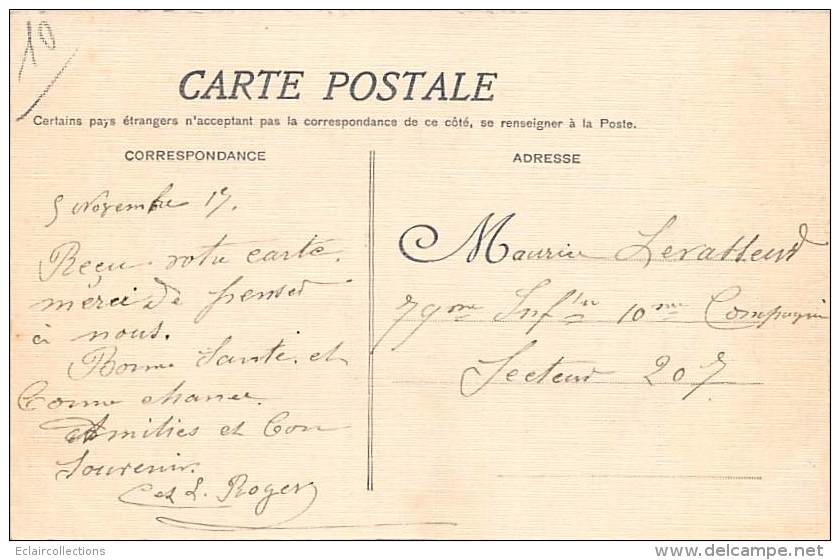 10
CARTE POSTALE
Certains pays étrangers n'acceptant pas la correspondance de ce côté, se renseigner à la Poste.
CORRESPONDANCE
5 Novembre 17.
Reçu votre carte.
merci de penser
à nous.
Bonne Santé et
bonne chance.
Amitiés et bon
Souvenir.
L. Roger
ADRESSE
Maurice Levasseur
79me Infrie 10me Compagnie
Secteur 207
Eclaircollections
delcampe.net